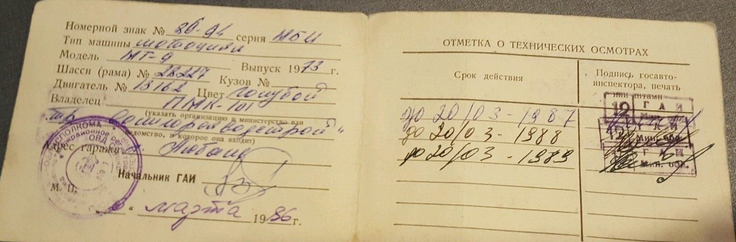 Номерной знак № 20-94 серия МБИ
Тип машины мотоцикл
Модель МТ-9 Выпуск 1973 г.
Шасси (рама) № 28227 Кузов №
Двигатель № 13162 Цвет голубой
Владелец ПМК-101
(указать организацию и министерство или
ведомство, в которое она входит)
Адрес гаража г. Любань
Начальник ГАИ
М. П.
марта 1986 г.
ОТМЕТКА О ТЕХНИЧЕСКИХ ОСМОТРАХ
Срок действия
Подпись госавто-
инспектора, печать
или штамп
до 20/03 - 1987
до 20/03 - 1988
до 20/03 - 1989
ГАИ
ГАИ
Мин. обл.
ГАИ
Мин. обл.